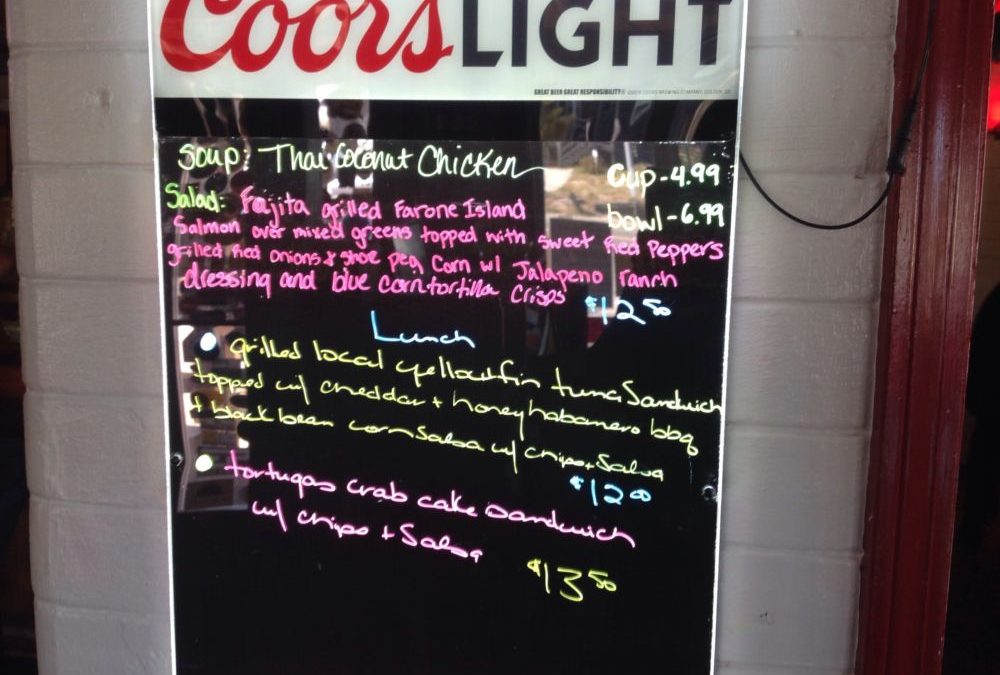 Coors LIGHT
GREAT BEER GREAT RESPONSIBILITY®
Soup: Thai Coconut Chicken
Cup - 4.99
bowl - 6.99
Salad: Fajita grilled Farone Island
Salmon over mixed greens topped with sweet Red Peppers
grilled Red Onions & shoe peg Corn w/ Jalapeno ranch
dressing and blue corn tortilla crisps
$12.50
Lunch
• grilled local yellowfin tuna Sandwich
topped w/ cheddar + honey habanero bbq
+ black bean corn salsa w/ chips + Salsa
$12.00
• tortugas crab cake sandwich
w/ chips + Salsa
$13.50